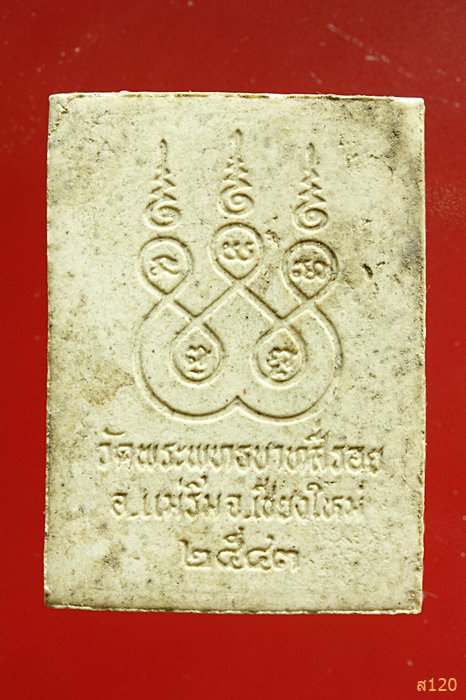 วัดพระพุทธบาทสี่รอย
อ.แม่ริม จ.เชียงใหม่
๒๕๔๓
ส120